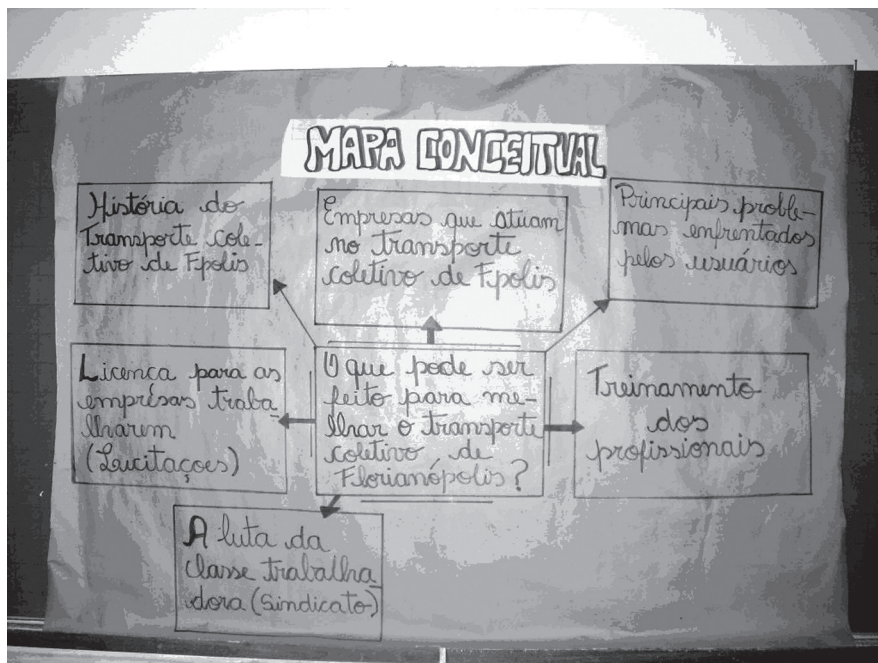 MAPA CONCEITUAL
História do
Transporte cole-
tivo de Fpolis
Empresas que atuam
no transporte
coletivo de Fpolis
Principais proble-
mas enfrentados
pelos usuários
Licença para as
emprésas traba_
lharem
(Laicitaçoes)
O que pode ser
feito para me-
lhar o transporte
coletivo de
Florianópolis?
Treinamento
dos
profissionais
A luta da
classe trabalha_
dora (Sindicato)